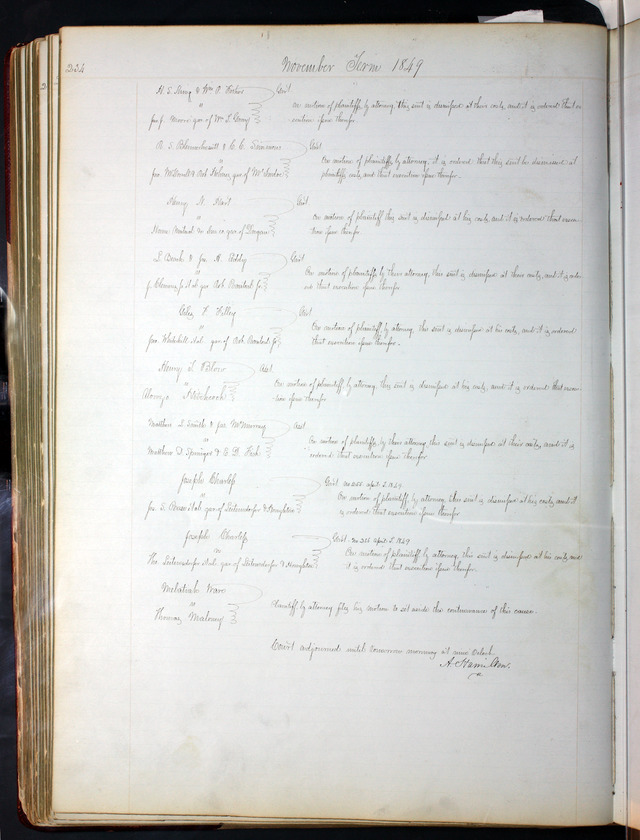 234
November Term 1849
H. S. King & Wm A.
vs
gar of Wm
On motion of plaintiffs by attorney this suit is dismissed at there costs, and it is ordered that ex-
ecution issue therefor.
R. S. Blennerhassett & C. C.
vs
gar of
On motion of plaintiffs by attorney, it is ordered that this suit be dismissed at
plaintiffs costs, and that execution issue therefor.
Henry N.
vs
Home Mutual Ins co gar of
On motion of plaintiff this suit is dismissed at his costs, and it is ordered that execu-
tion issue therefor
& Jas. H.
vs
gar Rob
On motion of plaintiffs by there attorney, this suit is dismissed at there costs, and it is order-
ed that execution issue therefor
F. Filley
vs
gar of Rob
On motion of plaintiff, by attorney, this suit is dismissed at his costs, and it is ordered
that execution issue therefor.
Henry T Blow
vs
Alonzo Hitchcock
On motion of plaintiff by attorney, this suit is dismissed at his costs, and it is ordered that execu-
tion issue therefor
Matthew L. Smith & Jas. McMurray
vs
Matthew D. Springer & C. B. Fisk
On motion of plaintiffs, by there attorney, this suit is dismissed at their costs, and it is
ordered that execution issue therefor
Joseph Charless
vs
Jas. S. gar of Leitensdorfer & Houghton
No 255 April T. 1849
On motion of plaintiff, by attorney, this suit is dismissed at his costs, and it
is ordered that execution issue therefor
Joseph Charless
vs
Tho. Leitensdorfer gar of Leitensdorfer & Houghton
April T. 1849
On motion of plaintiff, by attorney, this suit is dismissed at his costs, and
it is ordered that execution issue therefor.
Ware
vs
Thomas Maloney
Plaintiff by attorney files his motion to set aside the continuance of this cause.
Court adjourned until tomorrow morning at nine Oclock
A. Hamilton.